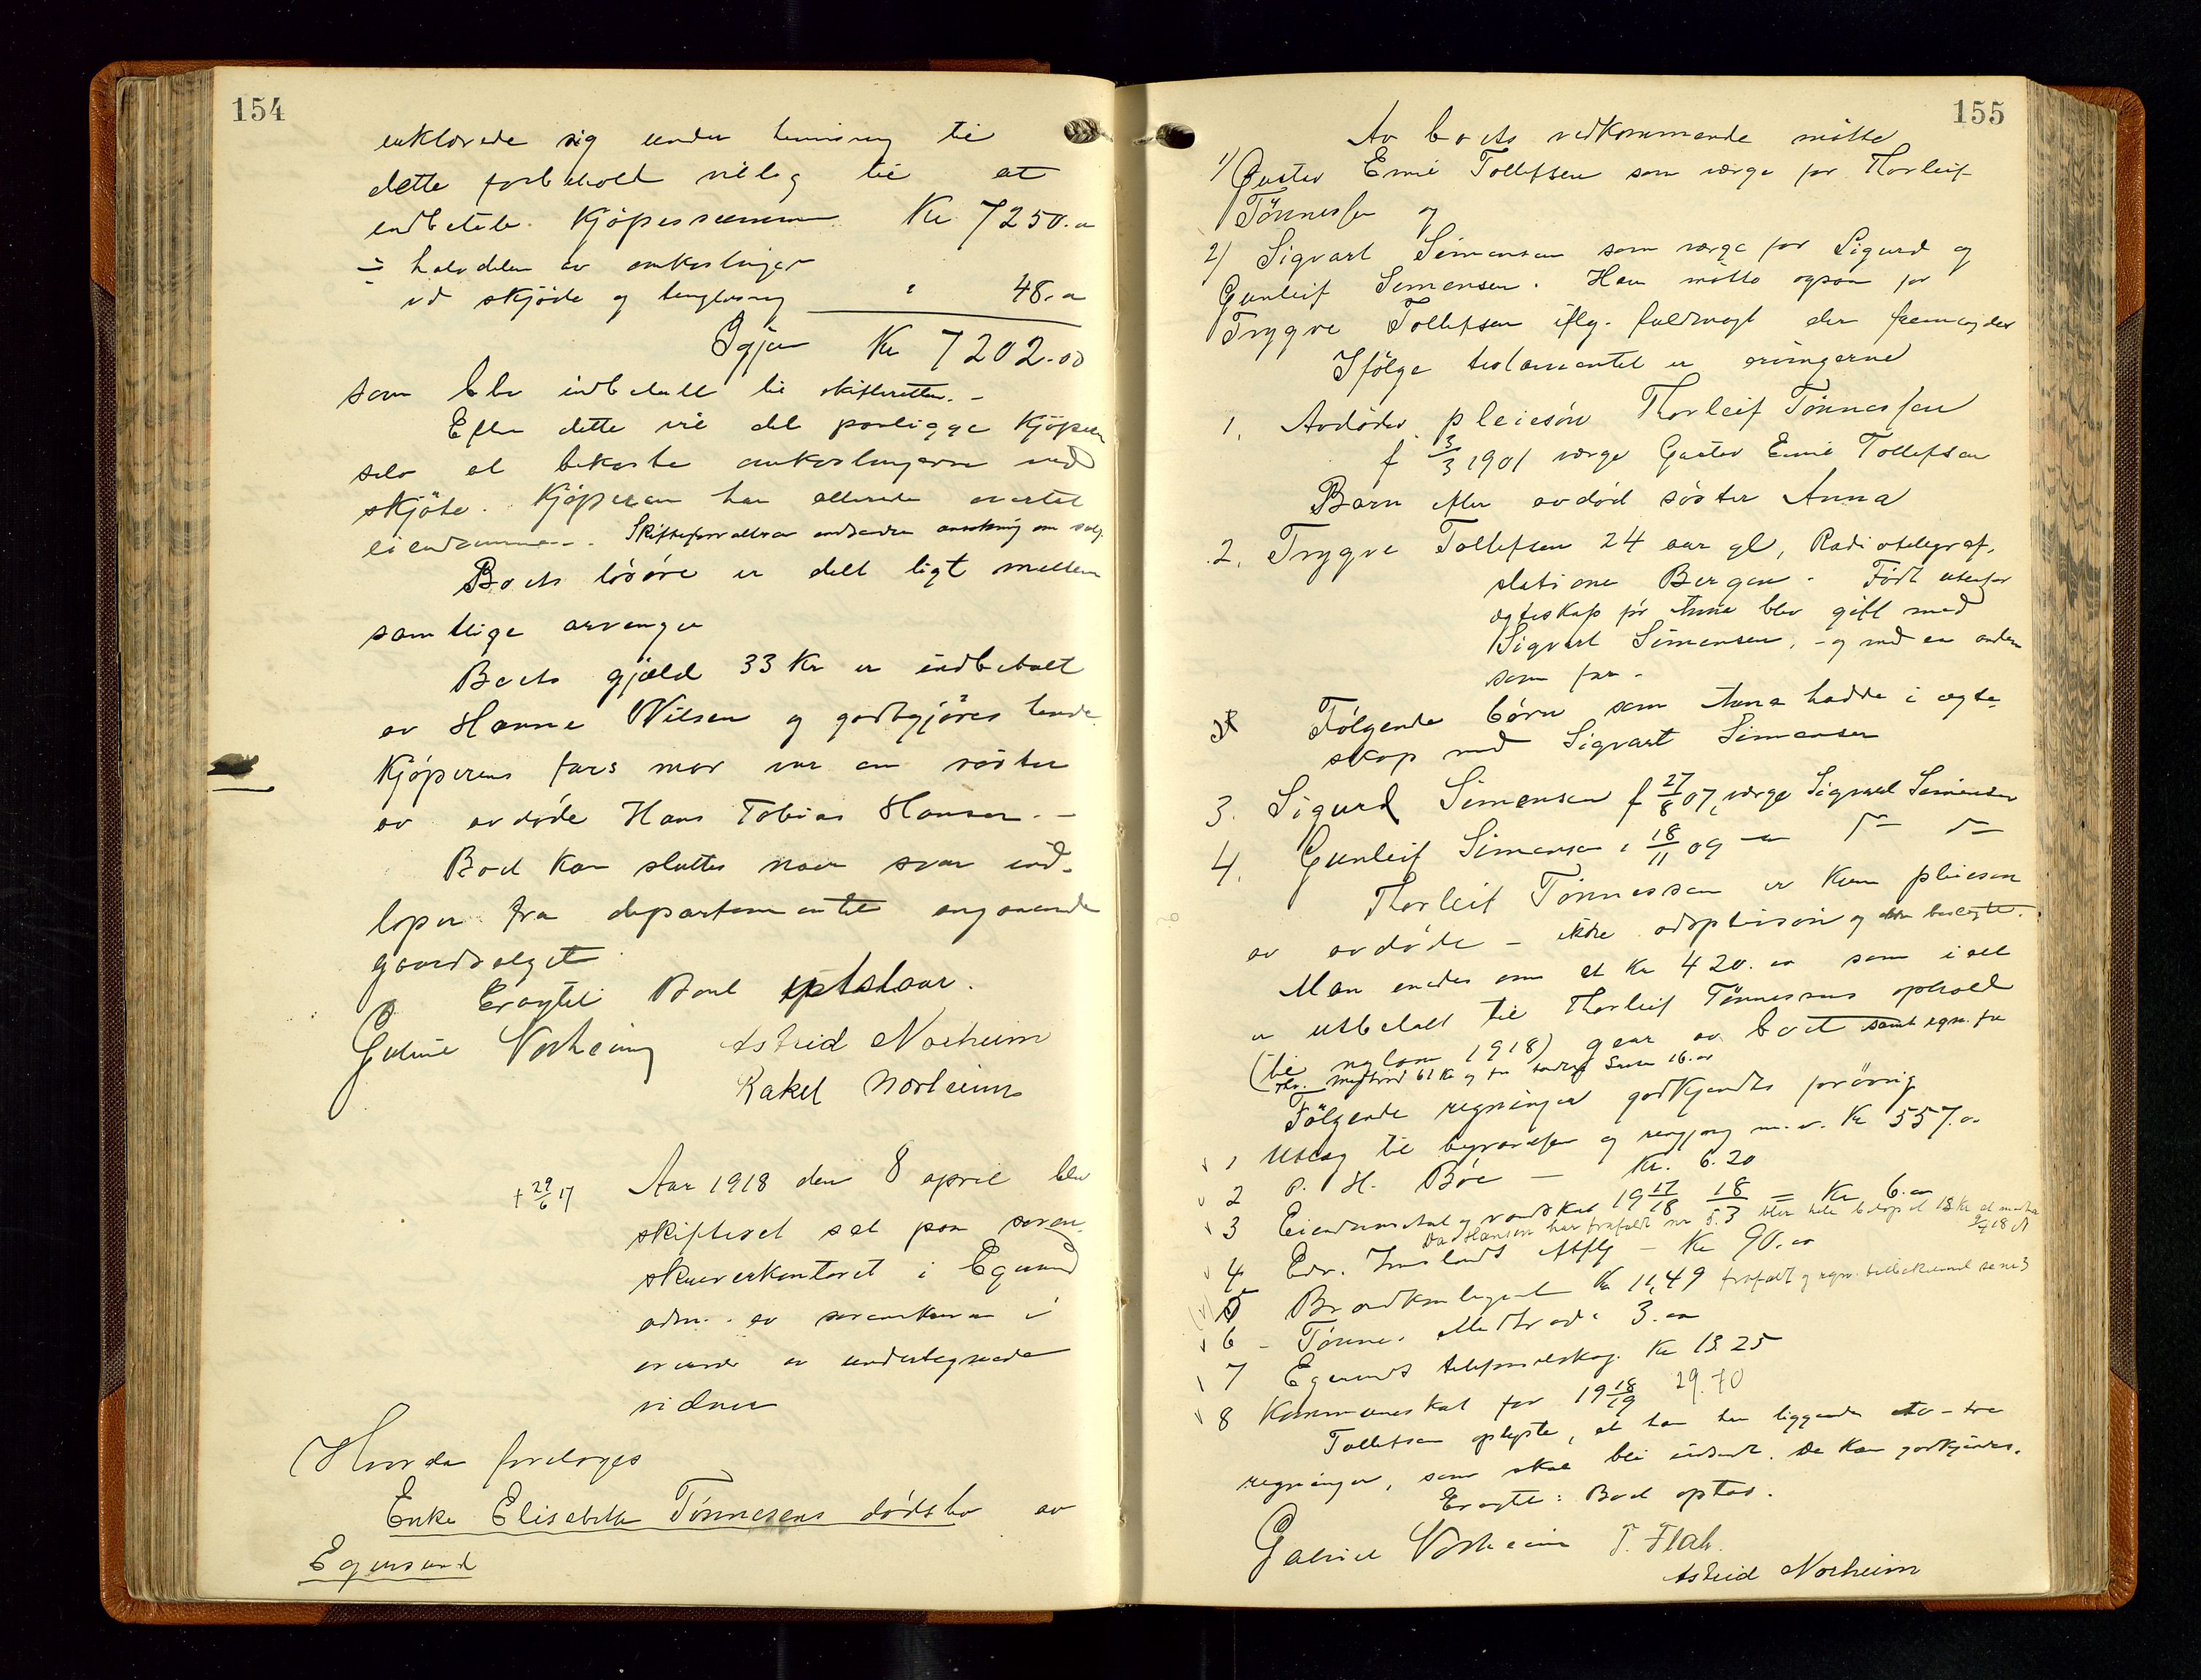 154
erklærede sig under henvisning til
dette forbehold villig til at
indbetale Kjøpesummen Kr 7250.00
÷ halvdelen av omkostninger
ved skjøte og tinglysning " 48.00
Igjen Kr 7202.00
som blev indbetalt til skifteretten. –
Efter dette vil det paaligge Kjøperen
selv at bekoste omkostningerne ved
skjøte. Kjøperen har allerede overtat
eiendommen. Skifteforvalteren indsender ansøkning om salg.
Boets løsøre er delt ligt mellem
samtlige arvinger
Boets gjæld 33 Kr er indbetalt
av Hanne Nilsen og godtgjøres hende.
Kjøperens fars mor var en søster
av avdøde Hans Tobias Hansen. –
Boet kan sluttes naar svar ind-
løper fra departementet angaaende
gaardsalget
Eragtet: Boet optstaar.
Gabriel Norheim Astrid Norheim
Rakel Norheim
† 29/6 17 Aar 1918 den 8 april blev
skifteret sat paa soren-
skriverkontoret i Egersund
adm. av sorenskriveren i
overvær av undertegnede
vidner
Hvorda foretoges
Enke Elisabeth Tønnesens dødsbo av
Egersund
155
Av boets vedkommende møtte
1) Gustav Emil Tollefsen som værge for Thorleif
Tønnessen og
2) Sigvart Simensen som værge for Sigurd og
Gunleif Simensen. Han møtte ogsaa for
Trygve Tollefsen iflg. fuldmagt der fremlagdes
Ifølge testamentet er arvingerne
1. Avdødes pleiesøn Thorleif Tønnessen
f 3/3 1901 værge Gustav Emil Tollefsen
Barn efter avdød søster Anna
2. Trygve Tollefsen 24 aar gl, Radiotelegraf-
stationen Bergen. Født utenfor
egteskap før Anna blev gift med
Sigvart Simensen, – og med en anden
som far.
Følgende børn som Anna hadde i egte-
skap med Sigvart Simensen
3. Sigurd Simensen f 27/8 07, værge Sigvard Simensen
4. Gunleif Simensen " 18/11 09 – " –
Thorleif Tønnessen er kun pleiesøn
av avdøde – ikke adoptivsøn og ikke beslegtet.
Man enedes om at Kr 420.00 som i alt
er utbetalt til Thorleif Tønnessens ophold
(til nylom 1918) gaar av boet samt regn. fra
61 Kr og fra 16.00
Følgende regninger godkjendtes forøvrig
1 Utlæg til begravelsen og rengjøring m.v. Kr 557.00
2 P. H. Bøe – Kr. 6.20
3 Eiendomsskat og vandskat 19 17/18 18 = Kr 6.00
Da Hansen har frafaldt nr 5.3 blir hele beløp 13 Kr 9/4 18
4 Edv. Imslands efterflg – Kr 90.00
5 Brandkontingent Kr 11,49 frafaldt og regn. tilbakesend senere
6 – Tønnes Medtrade 3.00
7 Egersunds telefonselskap. Kr 13.25
8 Kommuneskat for 19 18/19 29.70
Tollefsen oplyste, at han har liggende et to–tre
regninger, som skal bli indsendt. De kan godkjendes.
Eragtet: Boet optas.
Gabriel Norheim T. Flak.
Astrid Norheim